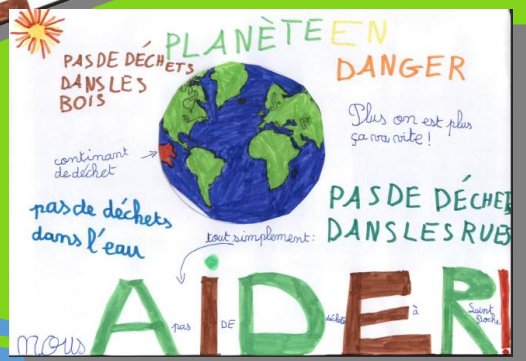 PLANÈTE EN
DANGER
PAS DE DÉCHETS
DANS LES
BOIS
Plus on est plus
ça va vite !
continant
de déchet
PAS DE DÉCHET
DANS LES RUES
pas de déchets
dans l'eau
tout simplement :
nous AIDER!
pas DE déchets à Saint Roch